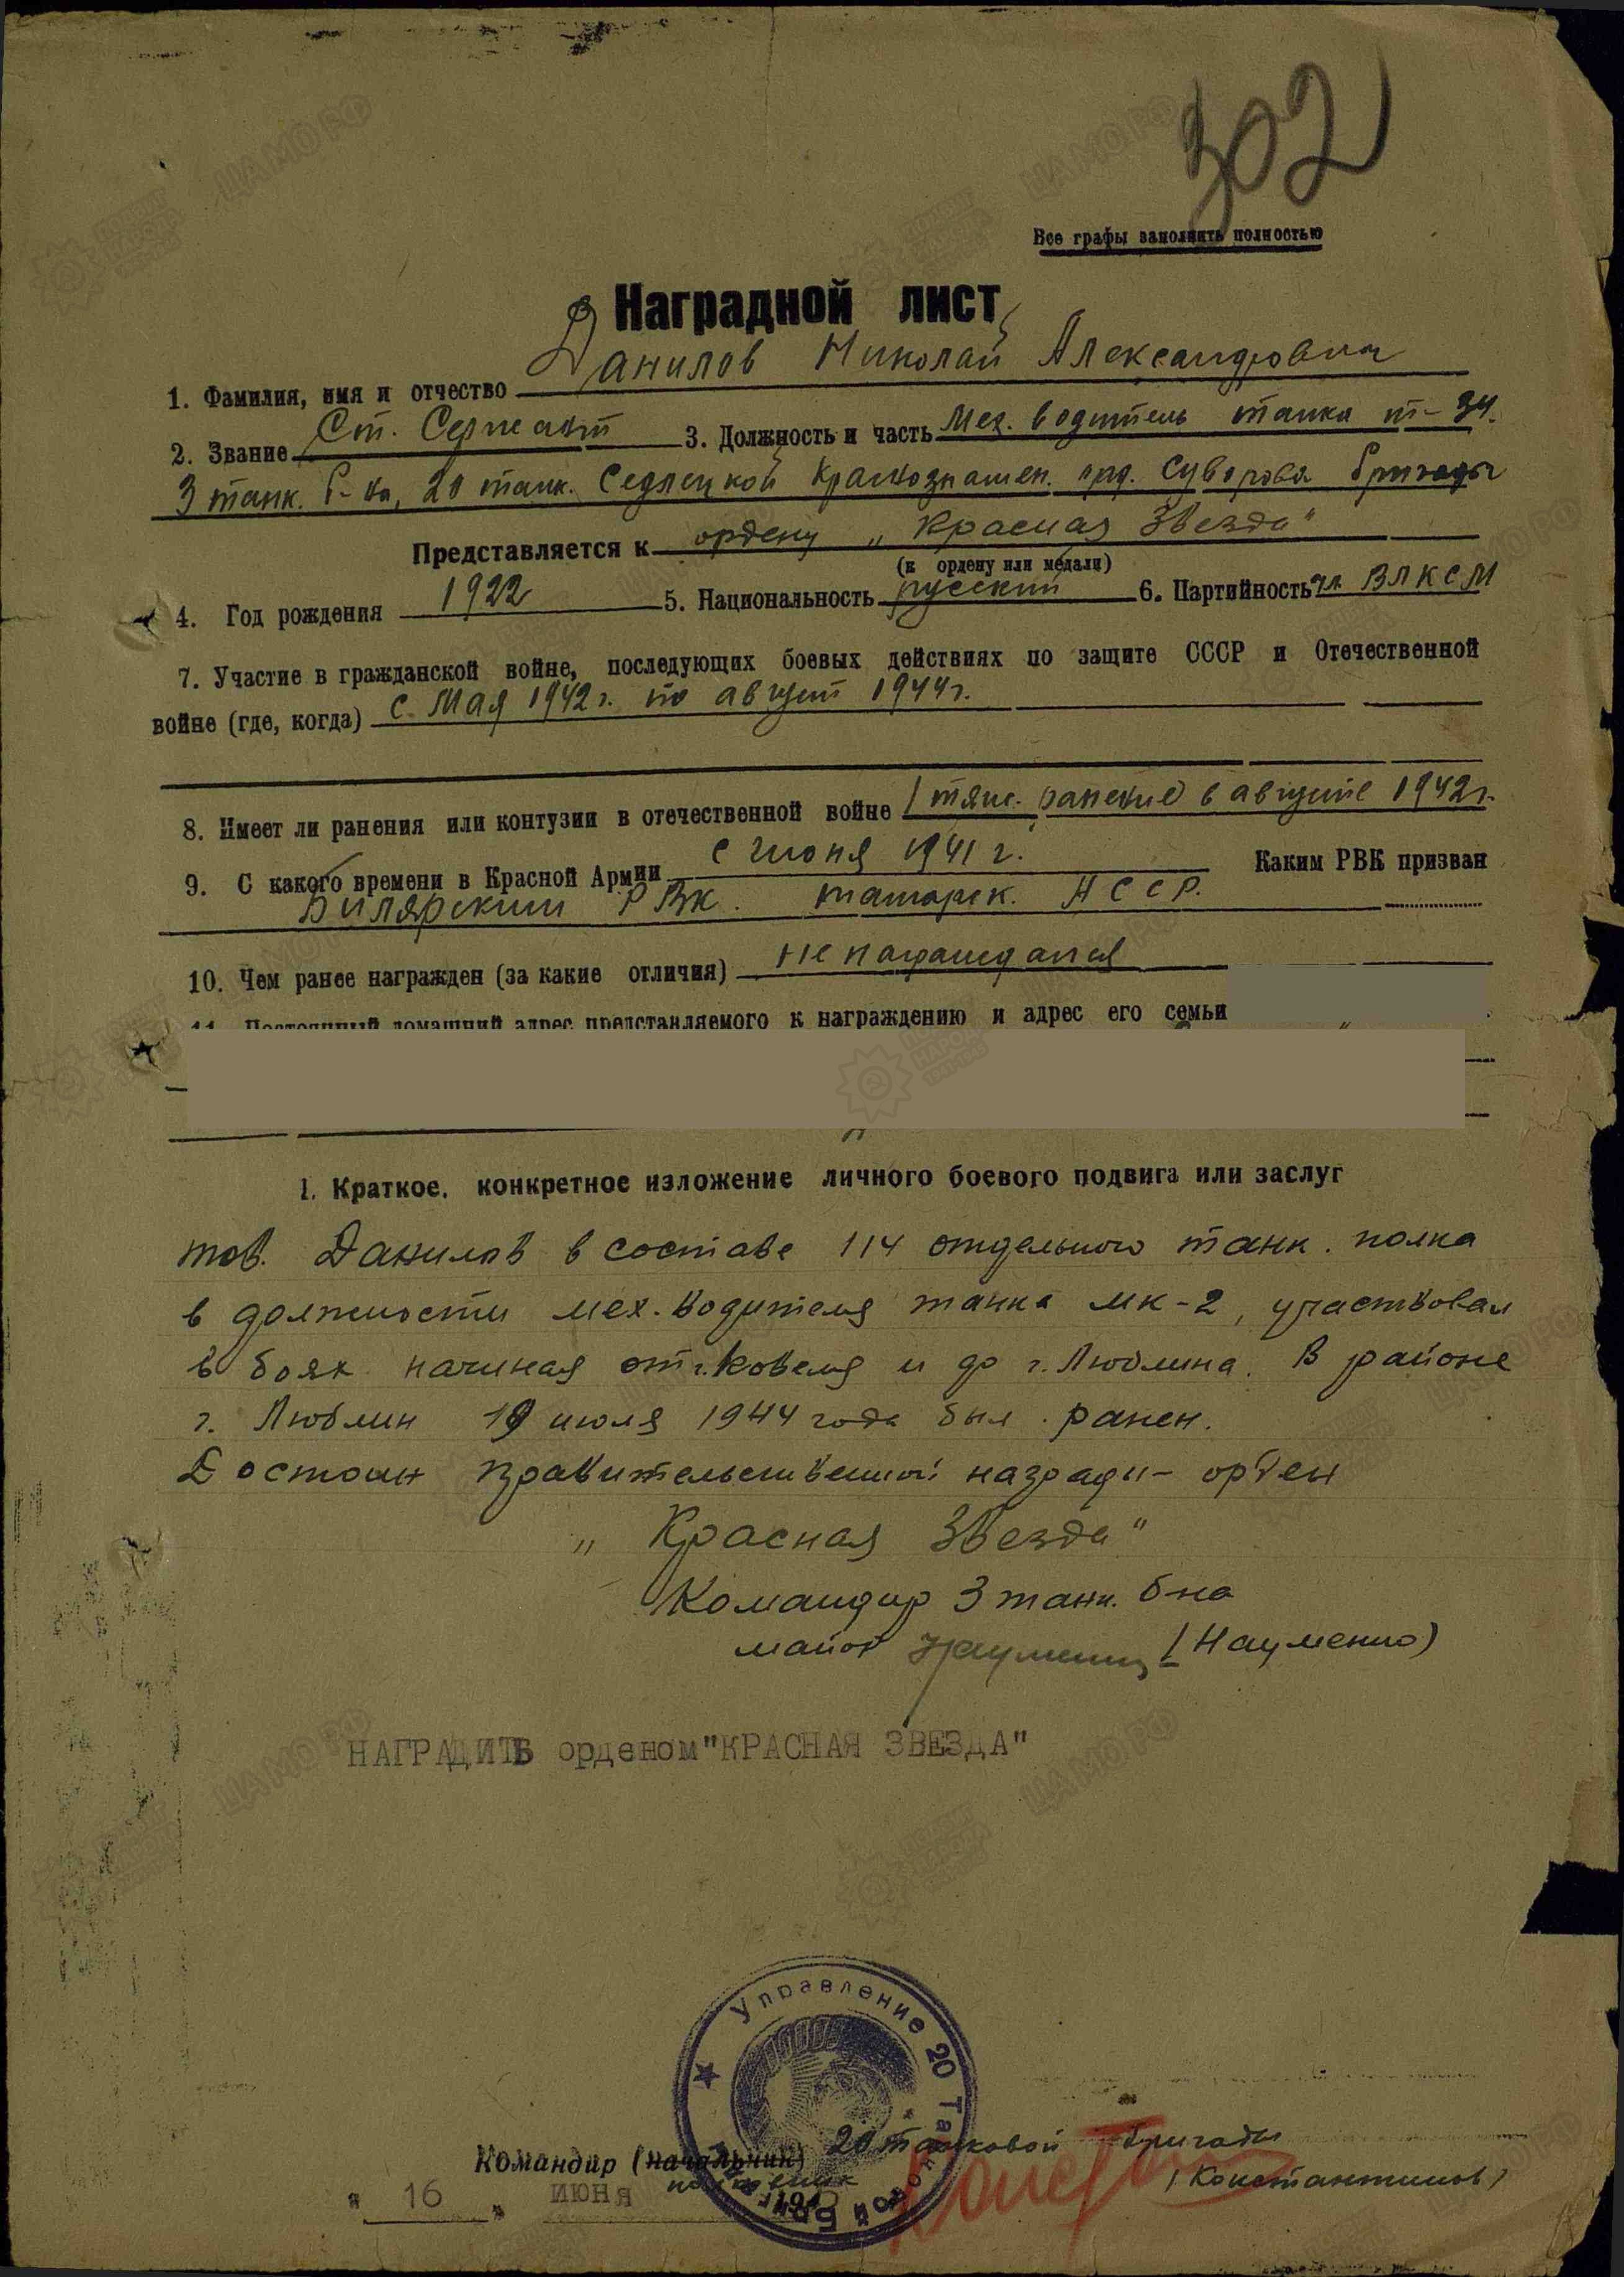 302
Все графы заполнить полностью
Наградной лист
1. Фамилия, имя и отчество Данилов Николай Александрович
2. Звание Ст. Сержант 3. Должность и часть Мех. водитель танка т-34.
3 танк. б-на, 20 танк. Седлецкой Краснознамен. орд. Суворова бригады
Представляется к ордену „Красная Звезда"
(к ордену или медали)
4. Год рождения 1922 5. Национальность русский 6. Партийность чл. ВЛКСМ
7. Участие в гражданской войне, последующих боевых действиях по защите СССР и Отечественной
войне (где, когда) с Мая 1942 г. по август 1944 г.
8. Имеет ли ранения или контузии в отечественной войне 1 тяж. ранение в августе 1942 г.
9. С какого времени в Красной Армии с Июня 1941 г. Каким РВК призван
Билярским РВК. татарск. АССР.
10. Чем ранее награжден (за какие отличия) не награждался
11. Постоянный домашний адрес представляемого к награждению и адрес его семьи
1. Краткое, конкретное изложение личного боевого подвига или заслуг
тов. Данилов в составе 114 отдельного танк. полка
в должности мех. водителя танка мк-2, участвовал
в боях начиная от г. Ковеля и до г. Люблина. В районе
г. Люблин 19 июля 1944 года был ранен.
Достоин правительственной награды - орден
„Красная Звезда"
Командир 3 танк. б-на
майор Науменко (Науменко)
НАГРАДИТЬ орденом "КРАСНАЯ ЗВЕЗДА"
Управление 20 Танковой Бриг
Командир (начальник) 20 танковой бригады
полковник (Константинов)
„ 16 " июня 194